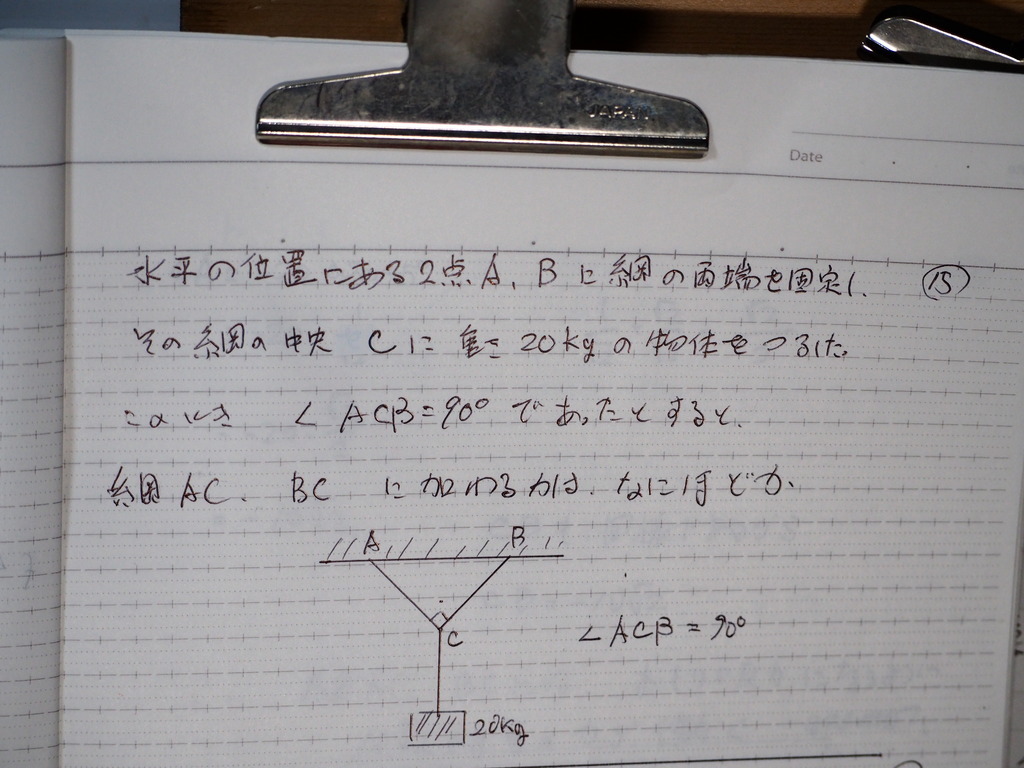 JAPAN
Date
水平の位置にある2点A、Bに綱の両端を固定し、 ⑮
その綱の中央 Cに重さ20kgの物体をつるした。
このとき ∠ACB=90°であったとすると、
綱AC、BC に加わる力は、なにほどか、
A B
C
∠ACB=90°
20kg